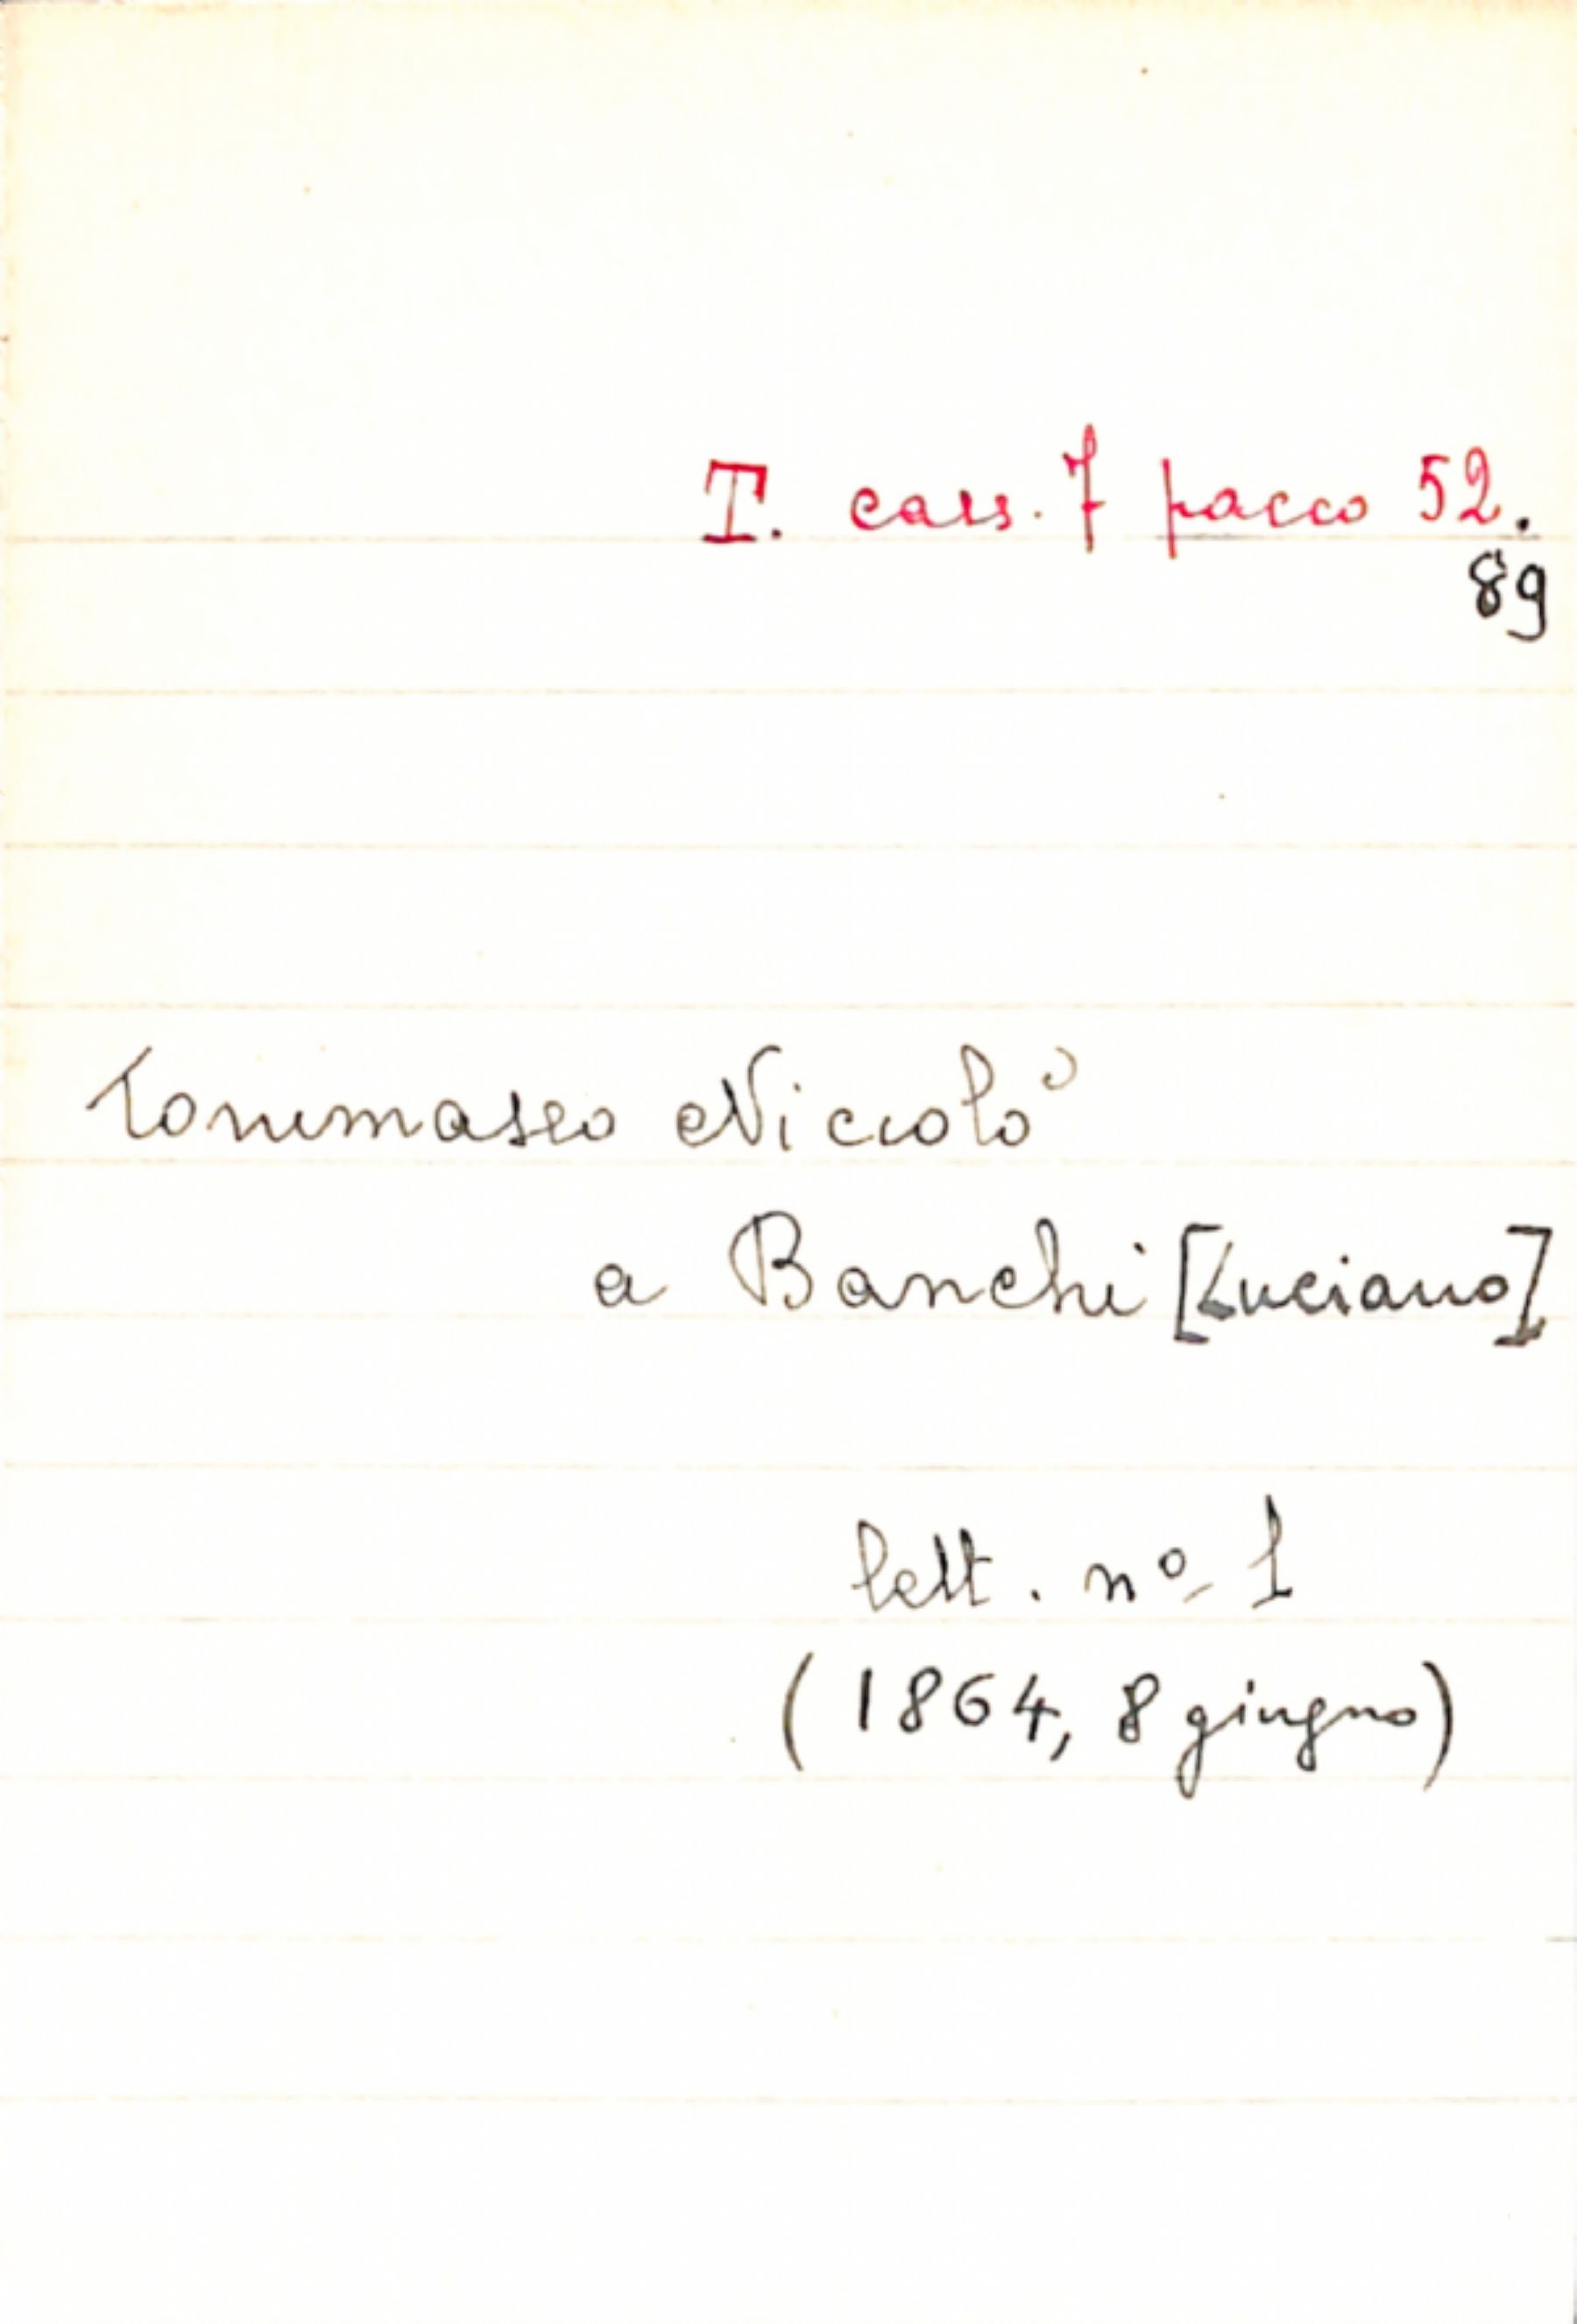 T. cass. 7 pacco 52.
89
Tommaseo Niccolò
a Banchi [Luciano]
lett. nº 1
(1864, 8 giugno)